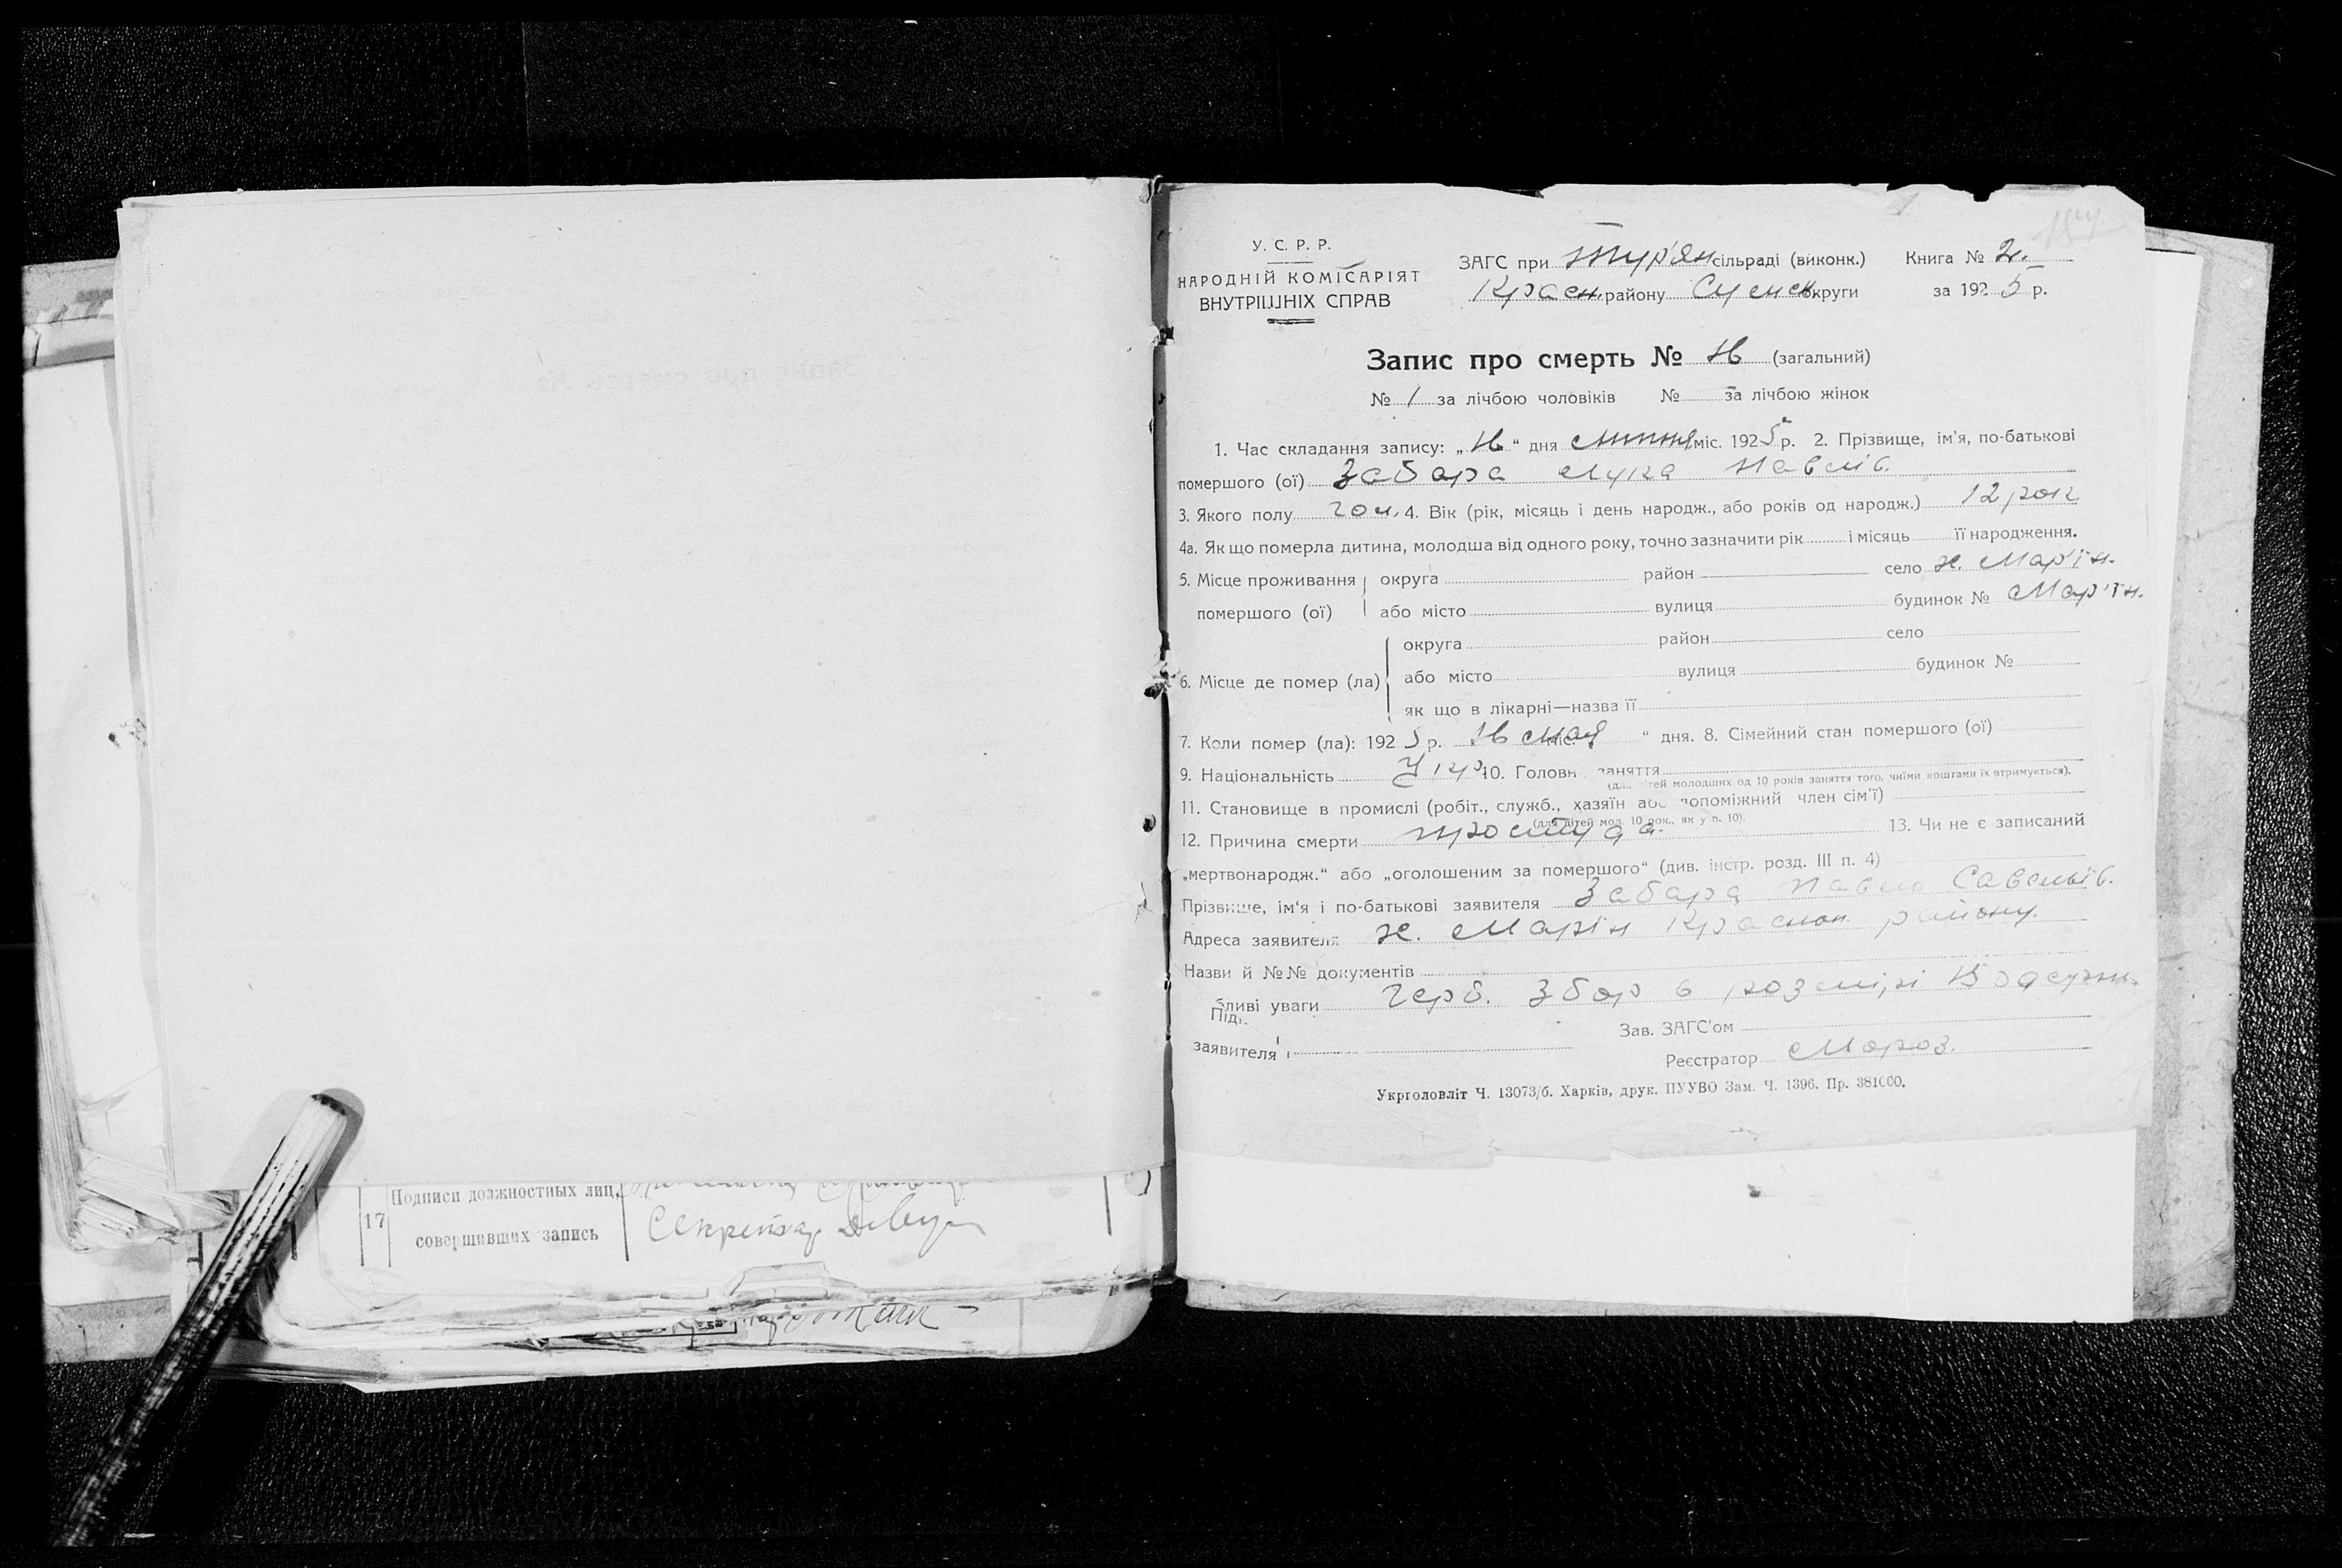 У. С. Р. Р.
НАРОДНІЙ КОМІСАРІЯТ
ВНУТРІШНІХ СПРАВ
ЗАГС при Тур'ян сільраді (виконк.) Книга № 2.
Красн. району Сумськ. округи за 1925 р.
Запис про смерть № (загальний)
№ 1 за лічбою чоловіків № за лічбою жінок
1. Час складання запису: „ “ дня міс. 1925 р. 2. Прізвище, ім'я, по-батькові
помершого (ої) Забара Лука Павлів.
3. Якого полу чол. 4. Вік (рік, місяць і день народж., або років од народж.) 12 рок
4а. Як що померла дитина, молодша від одного року, точно зазначити рік і місяць її народження.
5. Місце проживання округа район село х. Мар'їн.
помершого (ої) або місто вулиця будинок № Мар'їн.
округа район село
6. Місце де помер (ла) або місто вулиця будинок №
як що в лікарні—назва її
7. Коли помер (ла): 1925 р. мая міс. “ дня. 8. Сімейний стан помершого (ої)
9. Національність Укр 10. Головн заняття
(для дітей молодших од 10 років заняття того, чиїми коштами їх втримується).
11. Становище в промислі (робіт., служб., хазяїн або допоміжний член сім'ї)
(для дітей мол. 10 рок., як у п. 10).
12. Причина смерти простуда. 13. Чи не є записаний
„мертвонародж.“ або „оголошеним за помершого“ (див. інстр. розд. III п. 4)
Прізвище, ім'я і по-батькові заявителя Забара Павло Савельїв.
Адреса заявителя х. Марїн Краснoп. району.
Назви й №№ документів
бливі уваги Герб. збор в розмірі
Підп.
Зав. ЗАГС'ом
заявителя
Реєстратор Мороз.
Укрголовліт Ч. 13073/б. Харків, друк. ПУУВО Зам. Ч. 1396. Пр. 381000.
17 Подписи должностных лиц,
совершивших запись Секретар